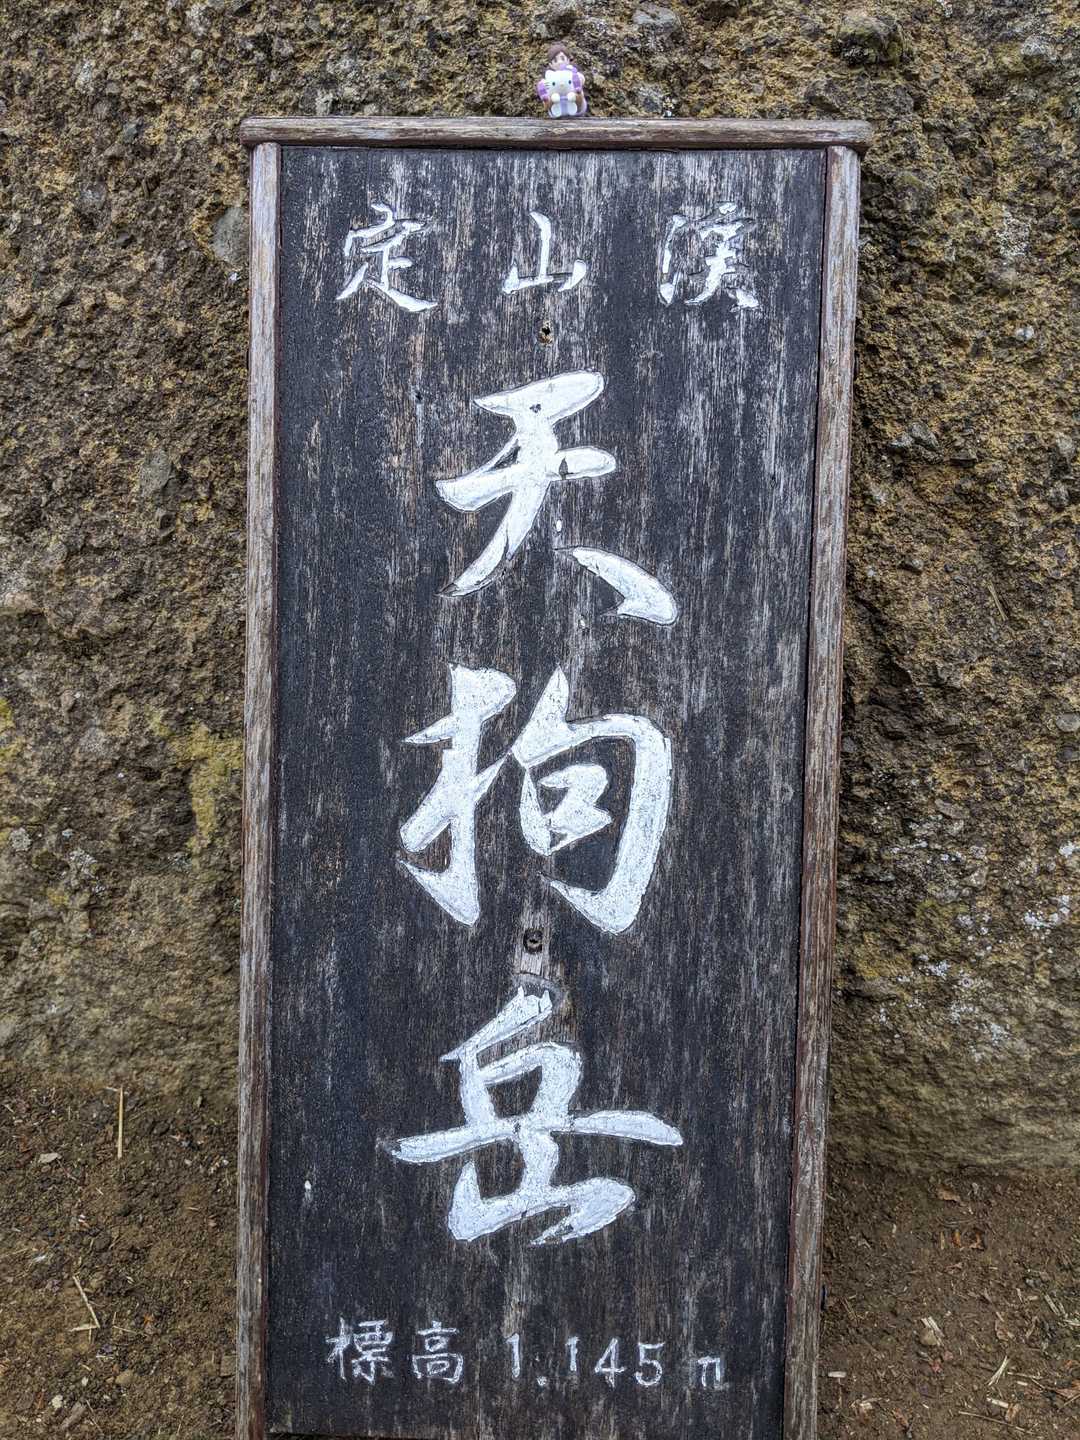 定山渓
天狗岳
標高 1.145m